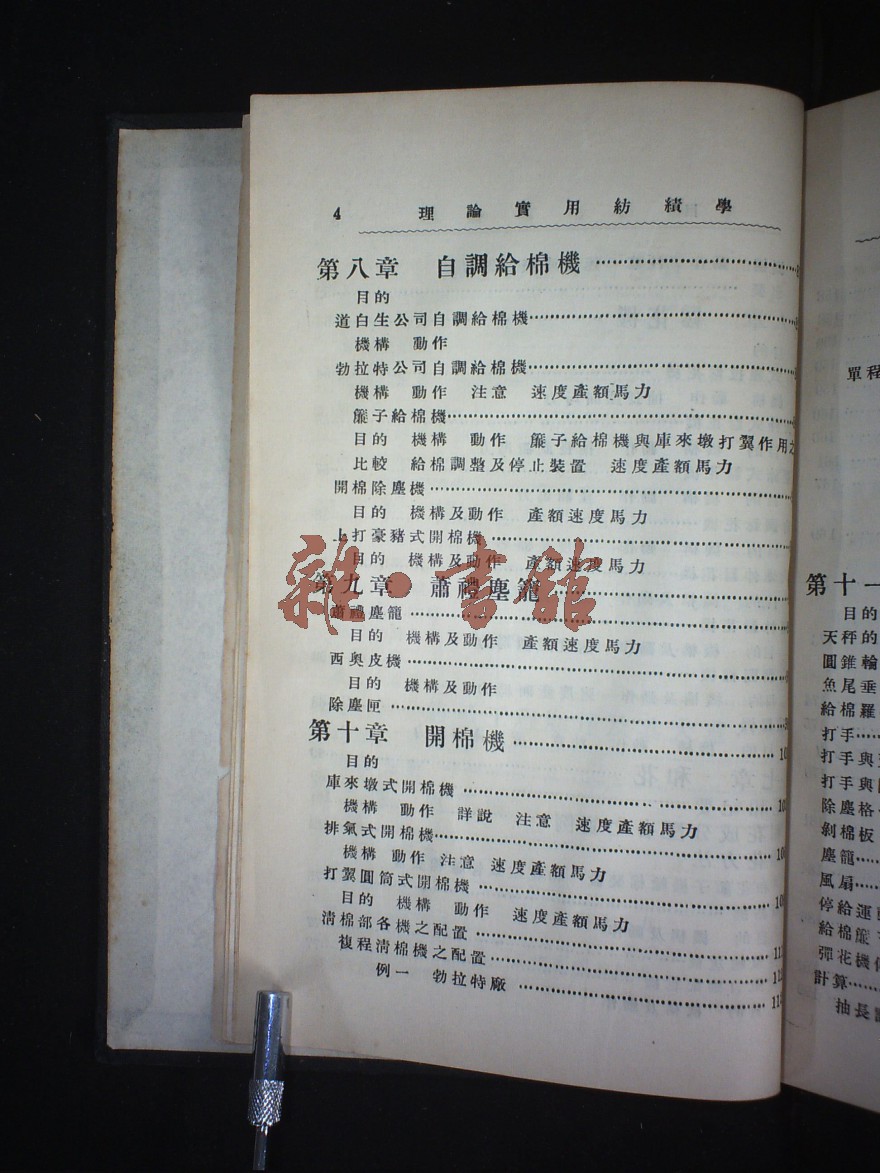 4 理論實用紡績學
第八章 自調給棉機
目的
道白生公司自調給棉機
機構 動作
勃拉特公司自調給棉機
機構 動作 注意 速度產額馬力
簾子給棉機
目的 機構 動作 簾子給棉機與庫來墩打翼作用之
比較 給棉調整及停止裝置 速度產額馬力
開棉除塵機
目的 機構及動作 產額速度馬力
上打豪豬式開棉機
目的 機構及動作 產額速度馬力
雜·書館
第九章 蕭禮塵籠
蕭禮塵籠
目的 機構及動作 產額速度馬力
西奧皮機
目的 機構及動作
除塵匣
第十章 開棉機
目的
庫來墩式開棉機
機構 動作 詳說 注意 速度產額馬力
排氣式開棉機
機構 動作 注意 速度產額馬力
打翼圓筒式開棉機
目的 機構 動作 速度產額馬力
淸棉部各機之配置
複程淸棉機之配置
例一 勃拉特廠
單程
第十一
目的
天秤的
圓錐輪
魚尾垂
給棉羅
打手
打手與
打手與
除塵格
剝棉板
塵籠
風扇
停給運
給棉簾
彈花機
計算
抽長